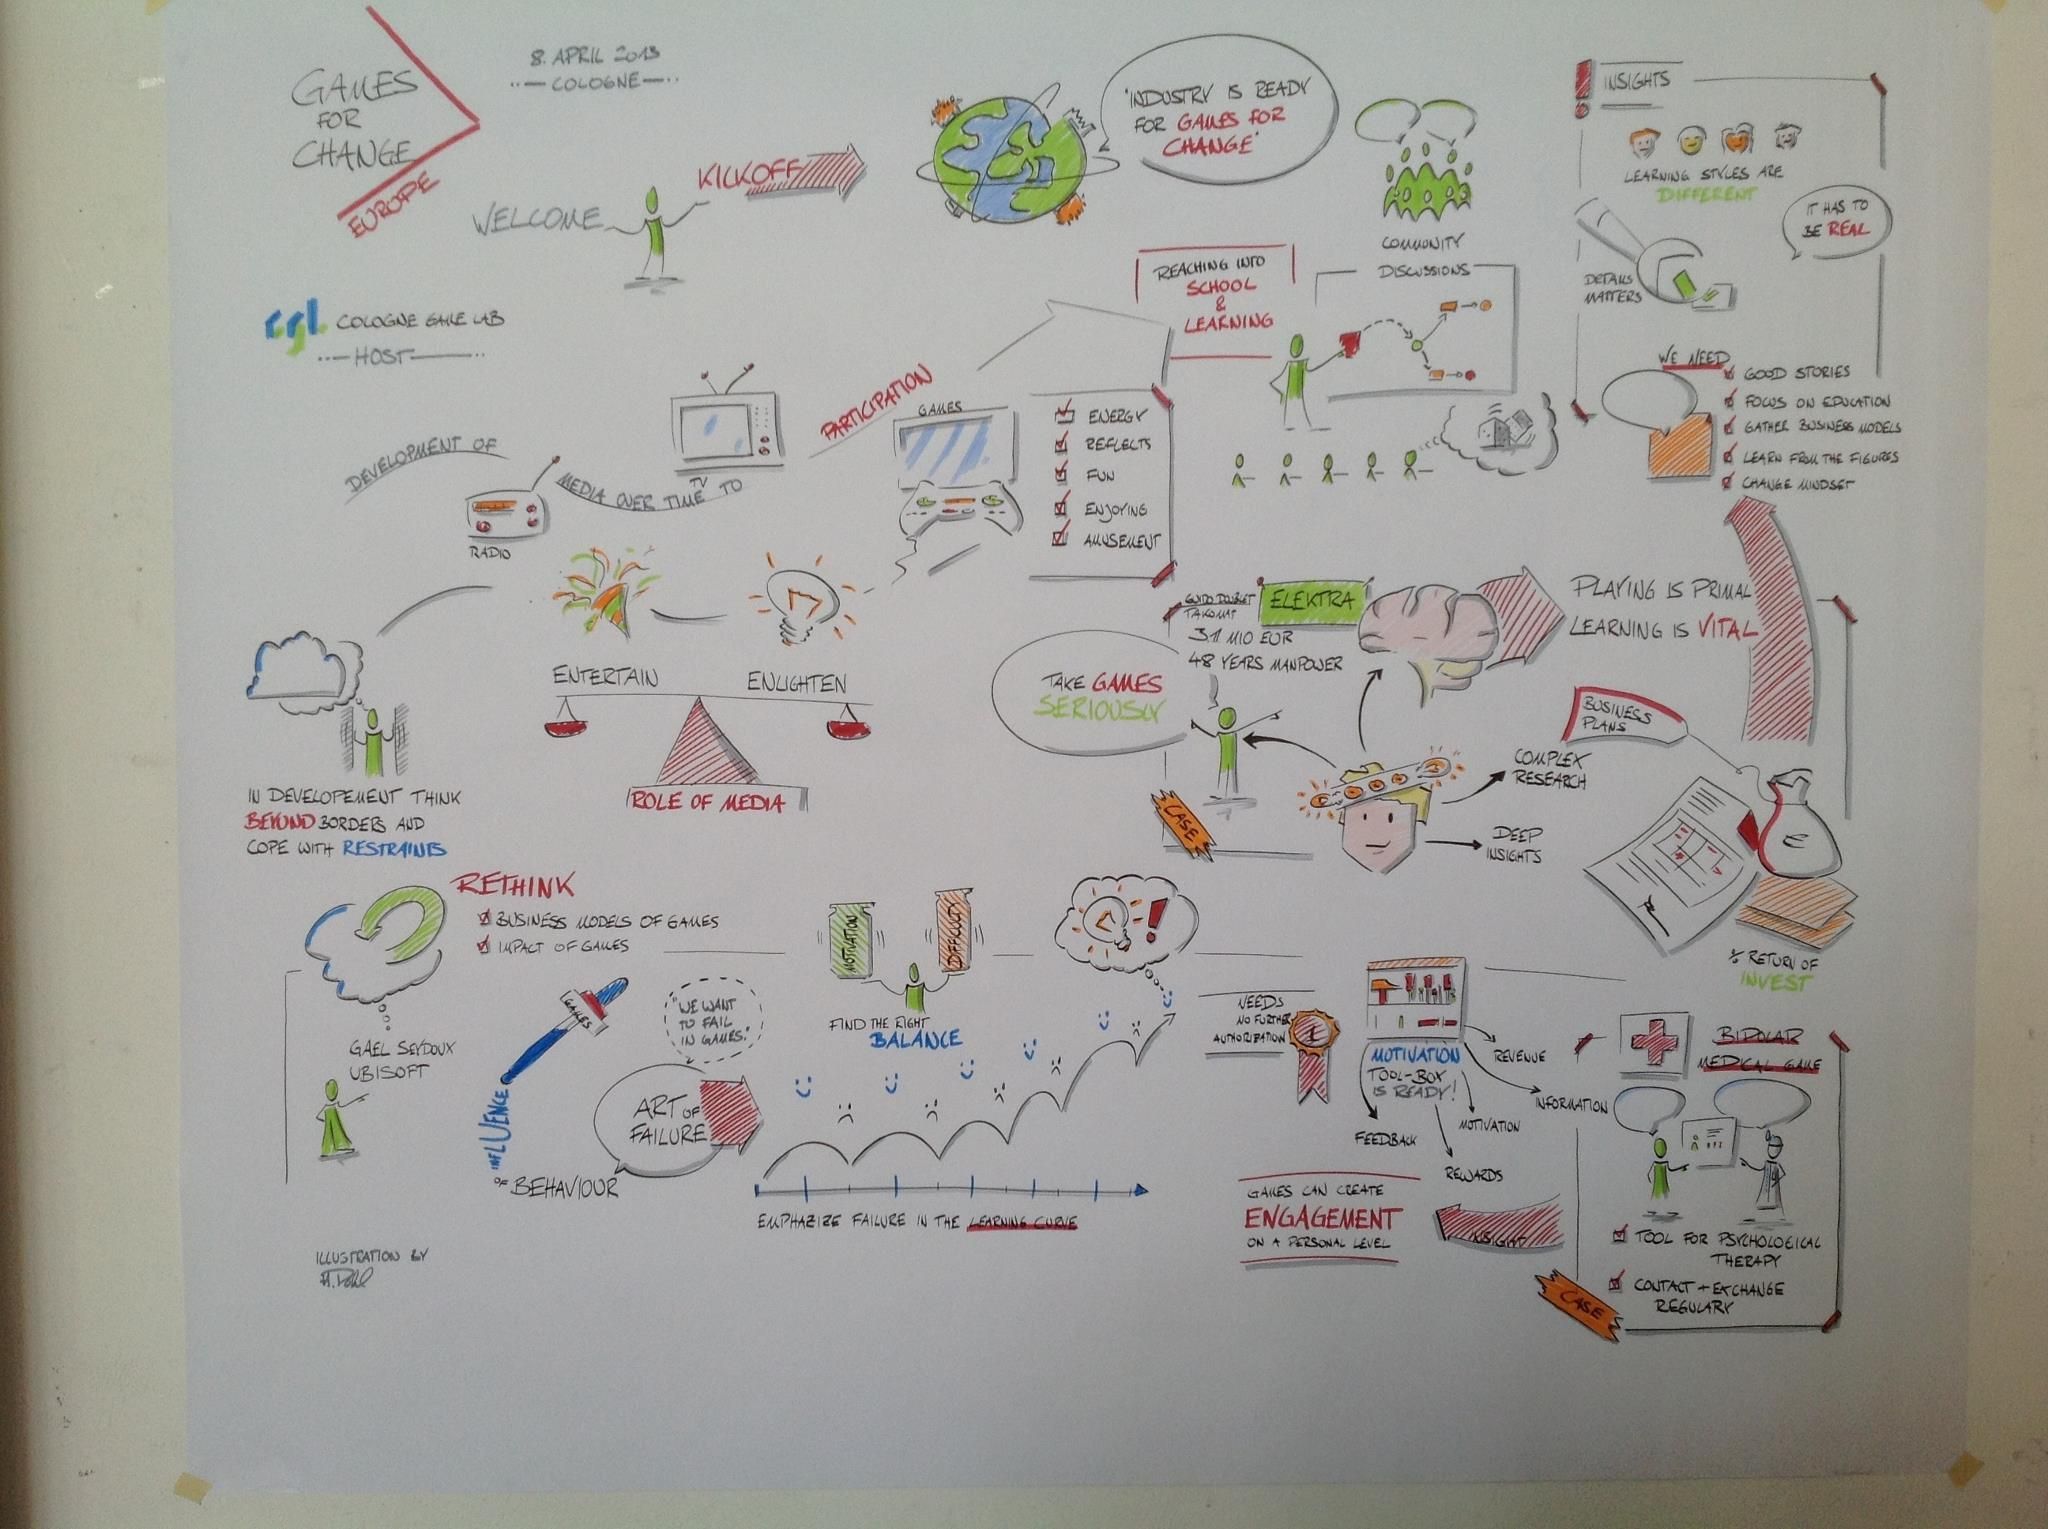 GAMES
FOR
CHANGE
EUROPE
8. APRIL 2013
COLOGNE
WELCOME
KICKOFF
"INDUSTRY IS READY
FOR GAMES FOR
CHANGE"
COMMUNITY
DISCUSSIONS
REACHING INTO
SCHOOL
&
LEARNING
INSIGHTS
LEARNING STYLES ARE
DIFFERENT
IT HAS TO
BE REAL
DETAILS
MATTERS
WE NEED
GOOD STORIES
FOCUS ON EDUCATION
GATHER BUSINESS MODELS
LEARN FROM THE FIGURES
CHANGE MINDSET
cgl
COLOGNE GAME LAB
HOST
DEVELOPMENT OF
MEDIA OVER TIME TO
RADIO
TV
PARTICIPATION
GAMES
ENERGY
REFLECTS
FUN
ENJOYING
AMUSEMENT
ENTERTAIN
ENLIGHTEN
ROLE OF MEDIA
IN DEVELOPEMENT THINK
BEYOND BORDERS AND
COPE WITH RESTRAINTS
TAKOMAT
ELEKTRA
MIO EUR
48 YEARS MANPOWER
TAKE GAMES
SERIOUSLY
CASE
PLAYING IS PRIMAL
LEARNING IS VITAL
COMPLEX
RESEARCH
DEEP
INSIGHTS
BUSINESS
PLANS
€
RETURN OF
INVEST
RETHINK
BUSINESS MODELS OF GAMES
IMPACT OF GAMES
GAEL SEYDOUX
UBISOFT
GAMES
INFLUENCE
OF BEHAVIOUR
"WE WANT
TO FAIL
IN GAMES."
ART OF
FAILURE
MOTIVATION
DIFFICULTY
FIND THE RIGHT
BALANCE
EMPHARIZE FAILURE IN THE LEARNING CURVE
NEEDS
NO FURTHER
AUTHORIZATION
1
MOTIVATION
TOOL-BOX
IS READY!
REVENUE
INFORMATION
MOTIVATION
FEEDBACK
REWARDS
GAMES CAN CREATE
ENGAGEMENT
ON A PERSONAL LEVEL
INSIGHT
BIPOLAR
MEDICAL GAME
TOOL FOR PSYCHOLOGICAL
THERAPY
CONTACT + EXCHANGE
REGULARY
CASE
ILLUSTRATION BY